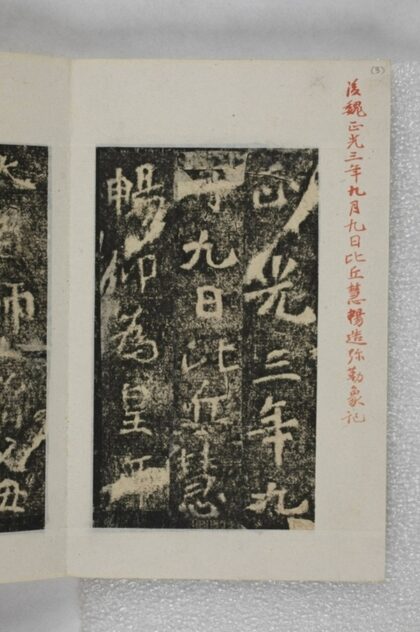 (3)
後魏正光三年九月九日比丘慧暢造弥勒象記
正光三年九
九日比丘慧
暢仰為皇帝
師